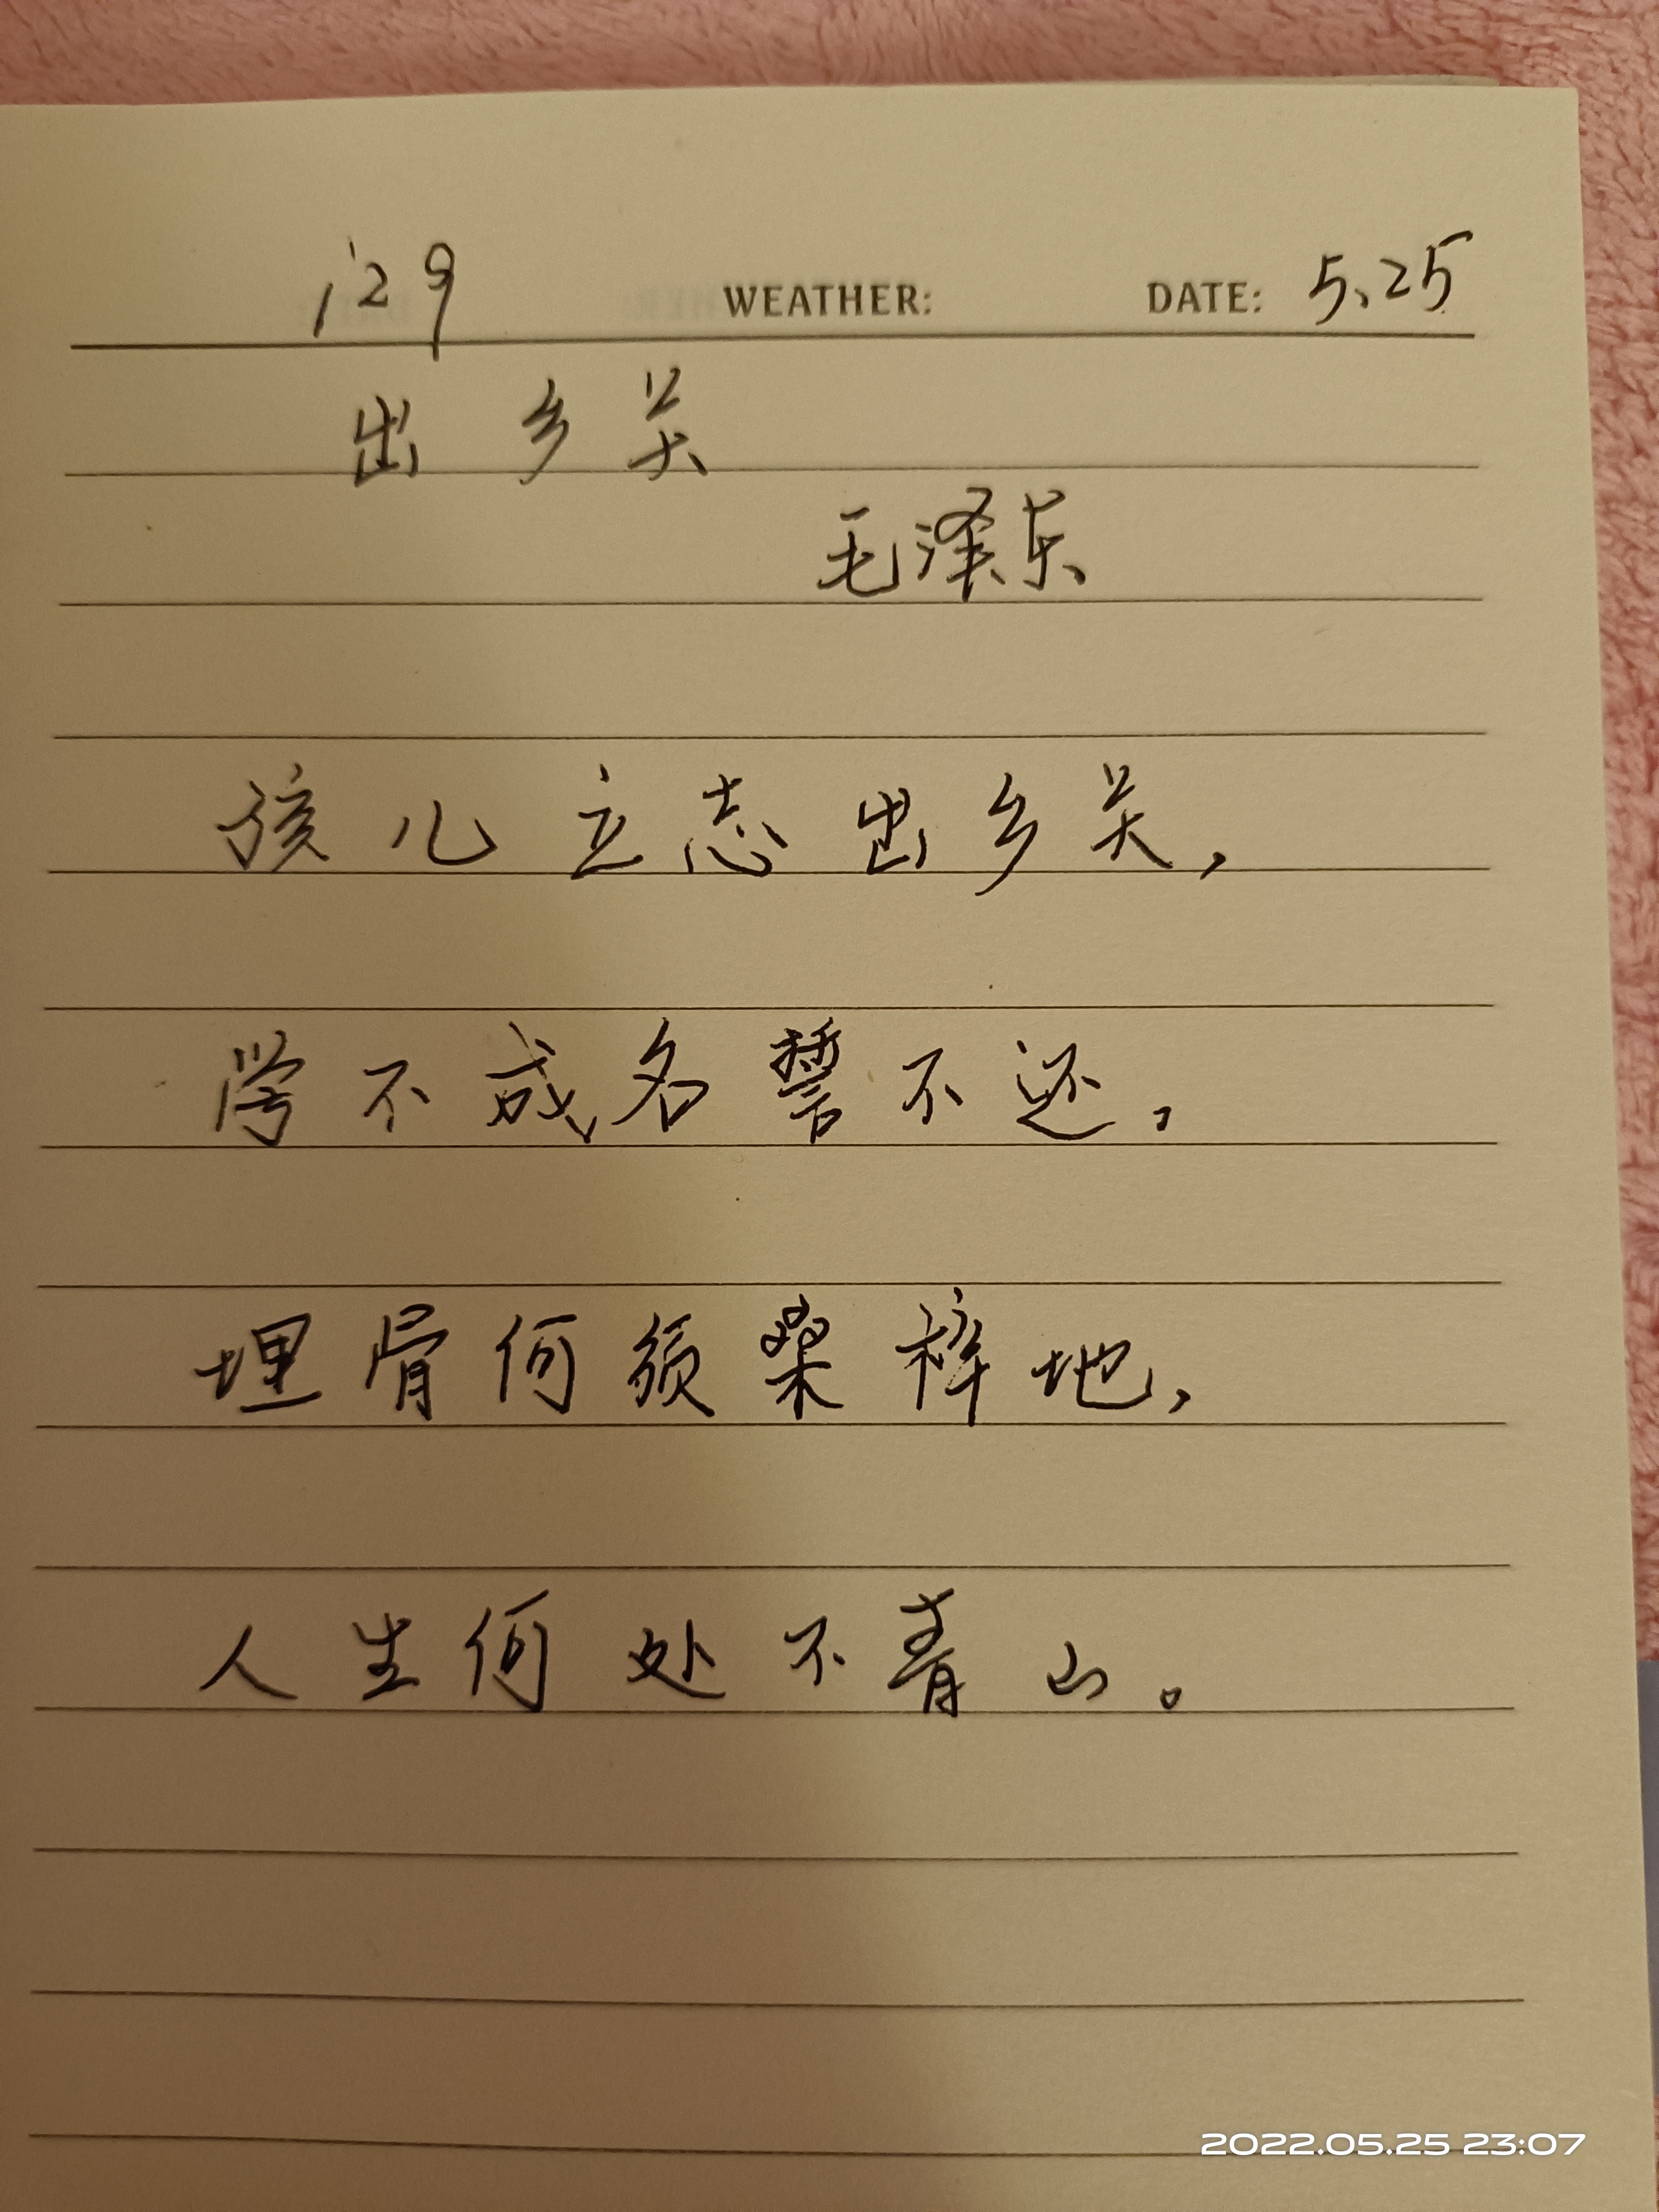 129 WEATHER: DATE: 5.25
出乡关
毛泽东
孩儿立志出乡关,
学不成名誓不还,
埋骨何须桑梓地,
人生何处不青山。
2022.05.25 23:07